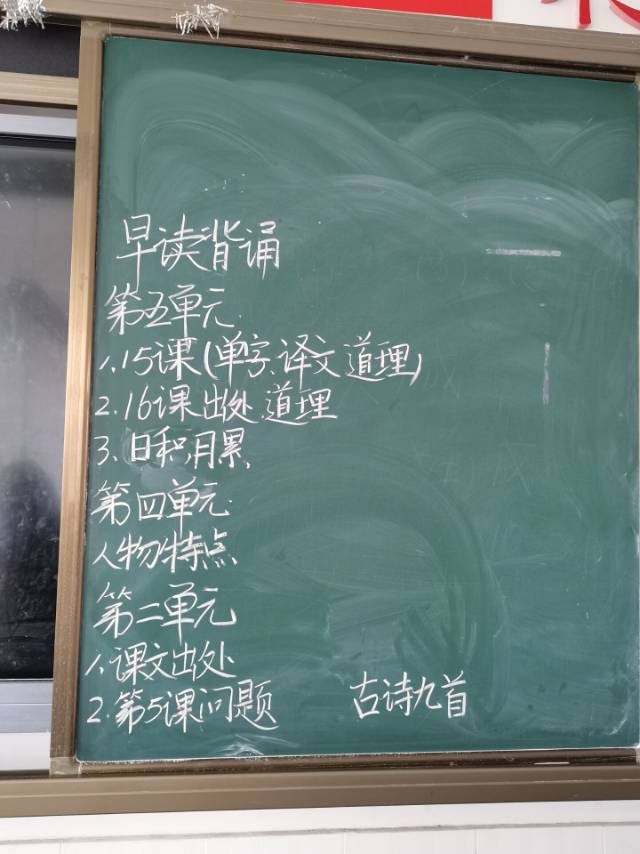 早读背诵
第五单元.
1.15课(单字、译文 道理)
2.16课 出处 道理
3、日积月累
第四单元.
人物特点
第二单元
1、课文出处
2.第5课问题
古诗九首